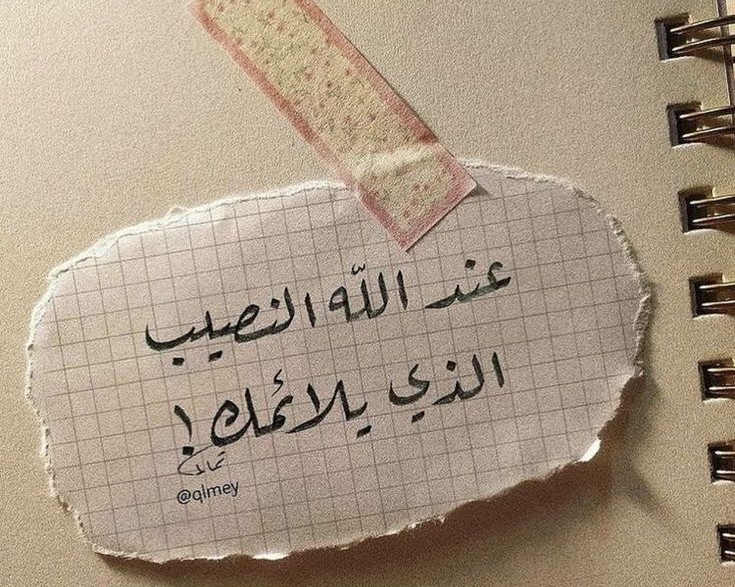 عند الله النصيب
الذي يلائمك!
@qlmey